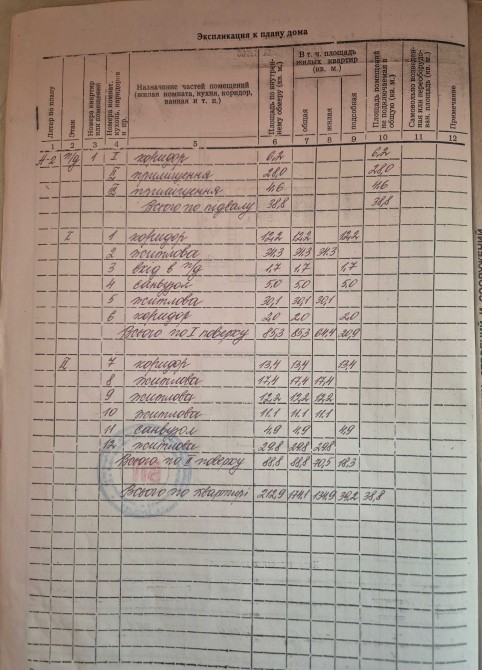 Экспликация к плану дома
Литер по плану
Этаж
Номера квартир или помещения
Номера комнат, кухонь, коридоров и пр.
Назначение частей помещений
(жилая комната, кухня, коридор,
ванная и т. п.)
Площадь по внутреннему обмеру (кв. м.)
В т. ч. площадь
жилых квартир
(кв. м.)
общая
жилая
подсобная
Площадь помещений не подключаемая в общую (кв. м.)
Самовольно возведенная или переоборудован. площадь (кв. м.)
Примечание
1 2 3 4 5 6 7 8 9 10 11 12
А-2 п/д 1 I коридор 6,2 6,2
II приміщення 28,0 28,0
III приміщення 4,6 4,6
Всього по підвалу 38,8 38,8
I 1 коридор 12,2 12,2 12,2
2 житлова 34,3 34,3 34,3
3 вхід в п/д 1,7 1,7 1,7
4 санвузол 5,0 5,0 5,0
5 житлова 30,1 30,1 30,1
6 коридор 2,0 2,0 2,0
Всього по I поверху 85,3 85,3 64,4 20,9
II 7 коридор 13,4 13,4 13,4
8 житлова 17,4 17,4 17,4
9 житлова 12,2 12,2 12,2
10 житлова 11,1 11,1 11,1
11 санвузол 4,9 4,9 4,9
12 житлова 29,8 29,8 29,8
Всього по II поверху 88,8 88,8 70,5 18,3
Всього по квартирі 212,9 174,1 134,9 39,2 38,8